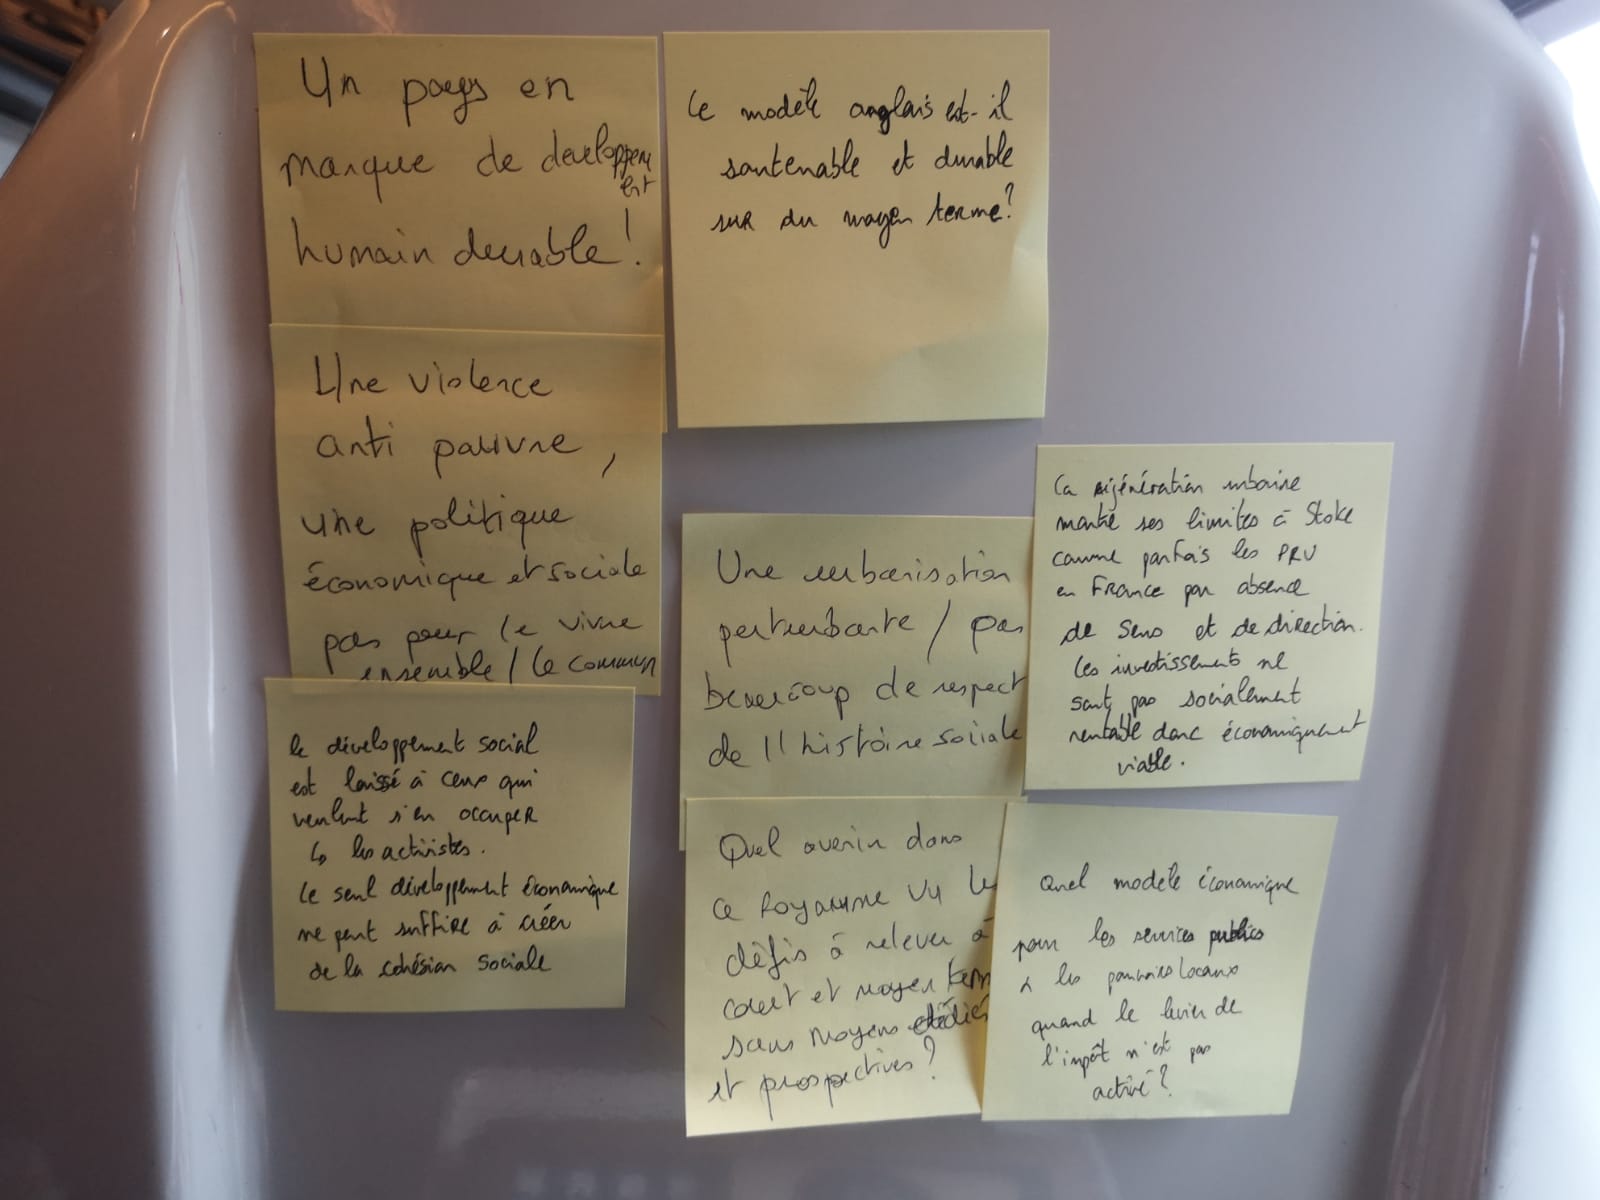 Un pays en
manque de developpem
ent
humain durable !
Le modèle anglais est-il
soutenable et durable
sur du moyen terme?
Une violence
anti pauvre,
une politique
économique et sociale
pas pour le vivre
ensemble / le commun
le développement social
est laissé à ceux qui
veulent s'en occuper
↳ les activistes.
Le seul développement économique
ne peut suffire à créer
de la cohésion sociale
Une urbanisation
perturbante / pas
beaucoup de respect
de l'histoire sociale
La régénération urbaine
montre ses limites à Stoke
comme parfois les PRU
en France par absence
de sens et de direction.
Les investissements ne
sont pas socialement
rentable donc économiquement
viable.
Quel avenir dans
ce Royaume Vu les
défis à relever à
court et moyen term
sans moyens dédiés
et prospectives ?
Quel modèle économique
pour les services publics
& les pouvoirs locaux
quand le levier de
l'impôt n'est pas
activé ?